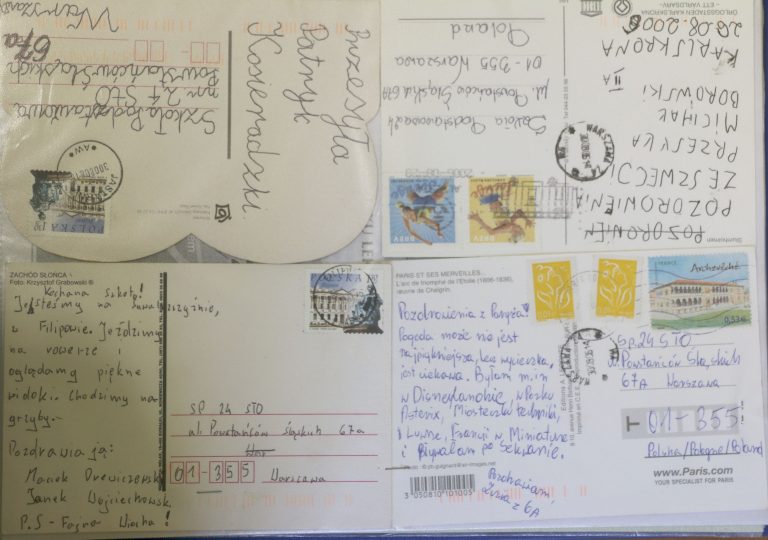 Przesyła
Patryk
Kosieradzki.
Szkoła Podstawowa
nr 24 STO
Powstańców Śląskich
67a
Warszawa
POLSKA
ÖRLOGSSTADEN KARLSKRONA
- ETT VÄRLDSARV-
29.08.2005
KARLSKRONA
POZDROWIEN
POZDROWIENIA
ZE SZWECJI
PRZESYŁA
MICHAŁ
BOROWSKI
II A
Szkoła Podstawowa 24
ul. Powstańców Śląskich 67A
01-355 Warszawa
Poland
Sverige
BREV
Sverige
BREV
WARSZAWA
30.08.05
Stumholmen
ZACHÓD SŁOŃCA -
Foto: Krzysztof Grabowski ©
Kochana szkoło!
Jesteśmy na Suwalszczyźnie,
w Filipowie. Jeździmy
na rowerze i
oglądamy piękne
widoki. Chodzimy na
grzyby.-
Pozdrawia ją:
Marek Drewiczewski
Janek Wojciechowski
P.S - Fajna Wiocha!
POLSKA
SP 24 STO
ul. Powstańców Śląskich 67a
01-355 Warszawa
PARIS ET SES MERVEILLES...
L'arc de triomphe de l'Etoile (1806-1836),
œuvre de Chalgrin.
Pozdrowienia z Paryża!
Pogoda może nie jest
najpiękniejsza, lecz wycieczka
jest ciekawa. Byłam m.in
w Disneylandzie, w Parku
Asterix, Miasteczku techniki,
Luwrze, Francji w Miniaturze
i pływałam po Sekwanie.
z 6A
3050810101005
FRANCE
0,53€
Sp. 24 STO
ul. Powstańców Śląskich
67A Warszawa
T 01-355!
Polska/Pologne/Poland
www.Paris.com
YOUR SPECIALIST FOR PARIS